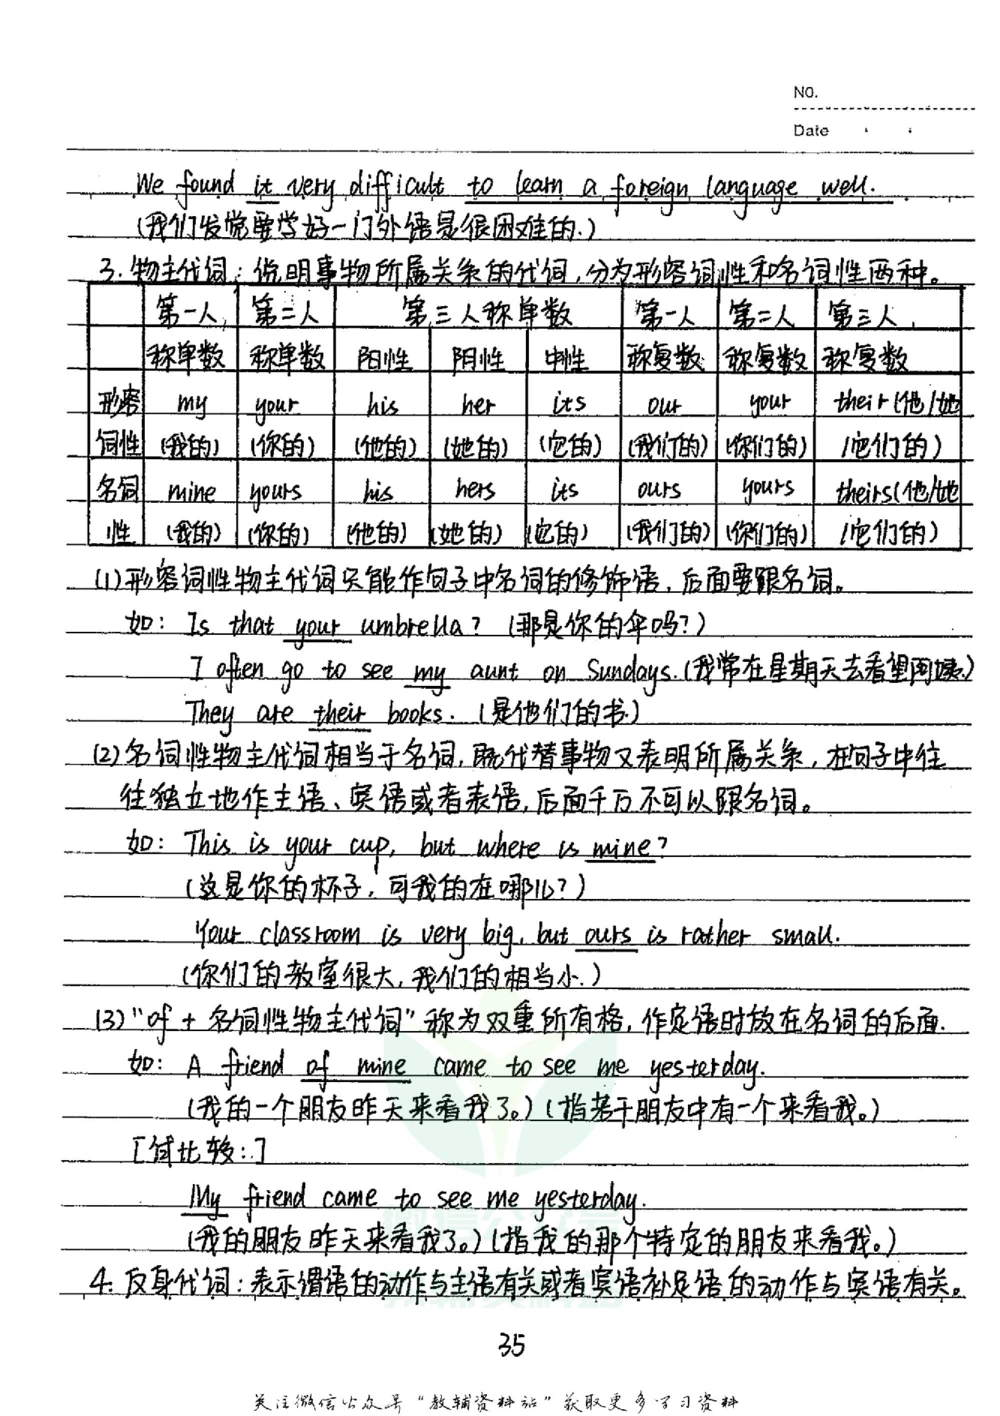 NO.
Date
We found it very difficult to learn a foreign language well.
(我们发觉要学好一门外语是很困难的.)
3.物主代词:说明事物所属关系的代词,分为形容词性和名词性两种。
第一人 第二人 第三人称单数 第一人 第二人 第三人
称单数 称单数 阳性 阴性 中性 称复数 称复数 称复数
形容 my your his her its our your their(他/她
词性 (我的) (你的) (他的) (她的) (它的) (我们的) (你们的) /它们的)
名词 mine yours his hers its ours yours theirs(他/她
性 (我的) (你的) (他的) (她的) (它的) (我们的) (你们的) /它们的)
(1)形容词性物主代词只能作句子中名词的修饰语,后面要跟名词。
如: Is that your umbrella? (那是你的伞吗?)
I often go to see my aunt on Sundays.(我常在星期天去看望阿姨.)
They are their books. (是他们的书.)
(2)名词性物主代词相当于名词,既代替事物又表明所属关系,在句子中往
往独立地作主语、宾语或者表语,后面千万不可以跟名词。
如: This is your cup, but where is mine?
(这是你的杯子,可我的在哪儿?)
Your classroom is very big, but ours is rather small.
(你们的教室很大,我们的相当小.)
(3)"of + 名词性物主代词"称为双重所有格,作定语时放在名词的后面.
如: A friend of mine came to see me yesterday.
(我的一个朋友昨天来看我了。)(指若干朋友中有一个来看我。)
[试比较:]
My friend came to see me yesterday.
(我的朋友昨天来看我了。)(指我的那个特定的朋友来看我。)
4.反身代词:表示谓语的动作与主语有关或者宾语补足语的动作与宾语有关。
35
关注微信公众号"教辅资料站"获取更多学习资料